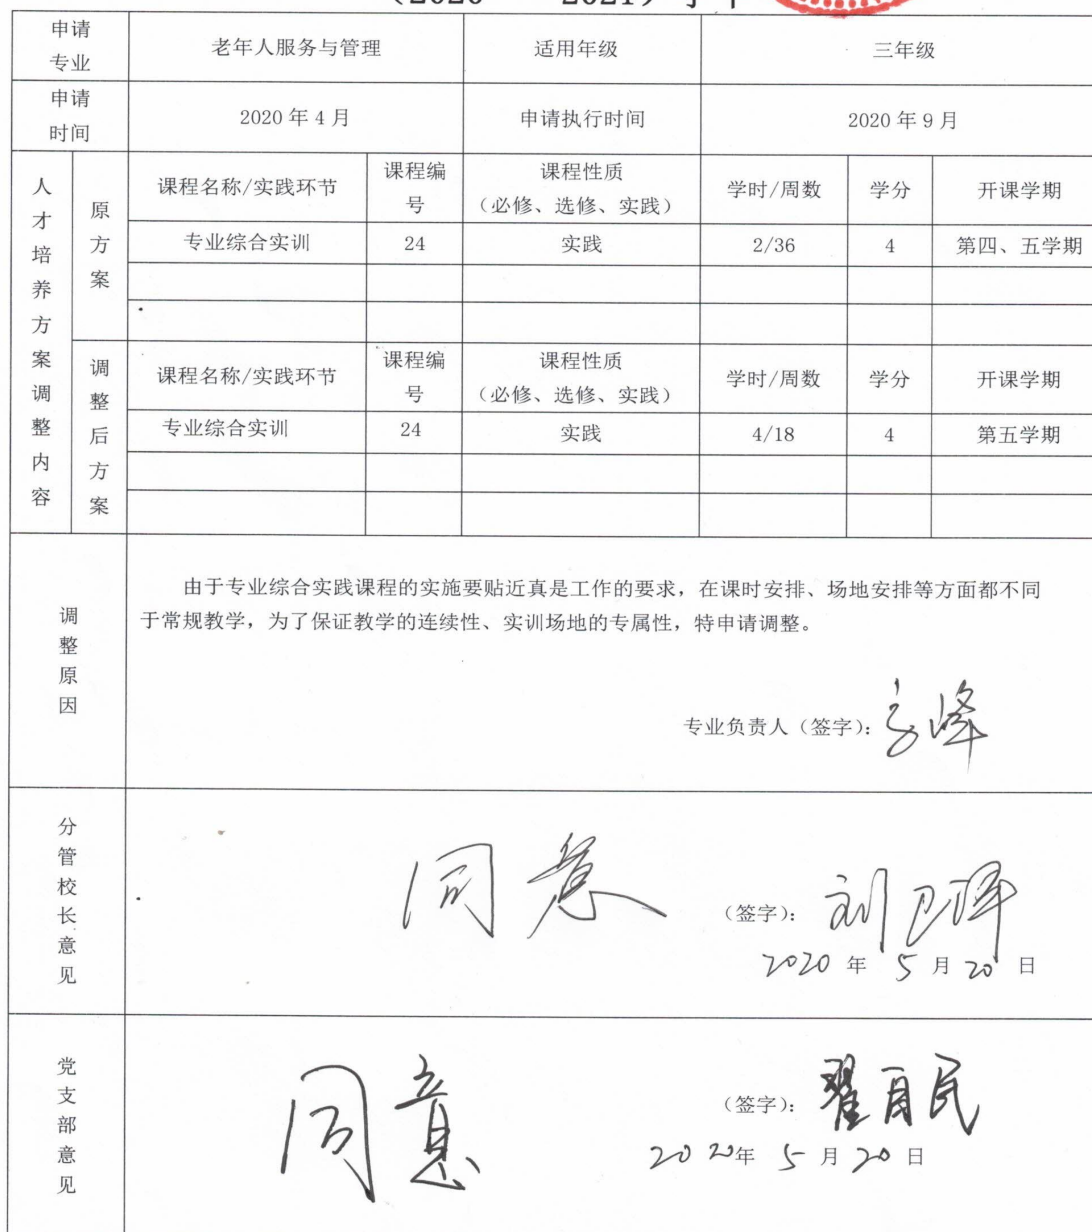 申请专业 老年人服务与管理 适用年级 三年级
申请时间 2020年4月 申请执行时间 2020年9月
人才培养方案调整内容
原方案
课程名称/实践环节 课程编号 课程性质（必修、选修、实践） 学时/周数 学分 开课学期
专业综合实训 24 实践 2/36 4 第四、五学期
调整后方案
课程名称/实践环节 课程编号 课程性质（必修、选修、实践） 学时/周数 学分 开课学期
专业综合实训 24 实践 4/18 4 第五学期
调整原因
由于专业综合实践课程的实施要贴近真是工作的要求，在课时安排、场地安排等方面都不同
于常规教学，为了保证教学的连续性、实训场地的专属性，特申请调整。
专业负责人（签字）：
分管校长意见
同意
（签字）：
2020年5月20日
党支部意见
同意
（签字）：
2020年5月20日